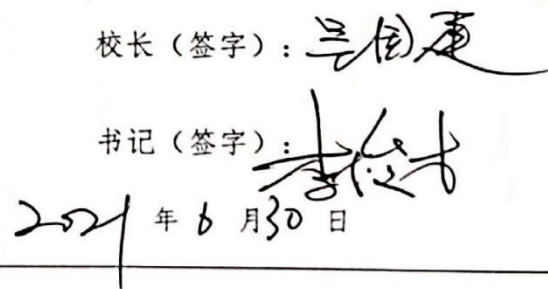 校长（签字）：吴国
书记（签字）：李俊
2021年6月30日